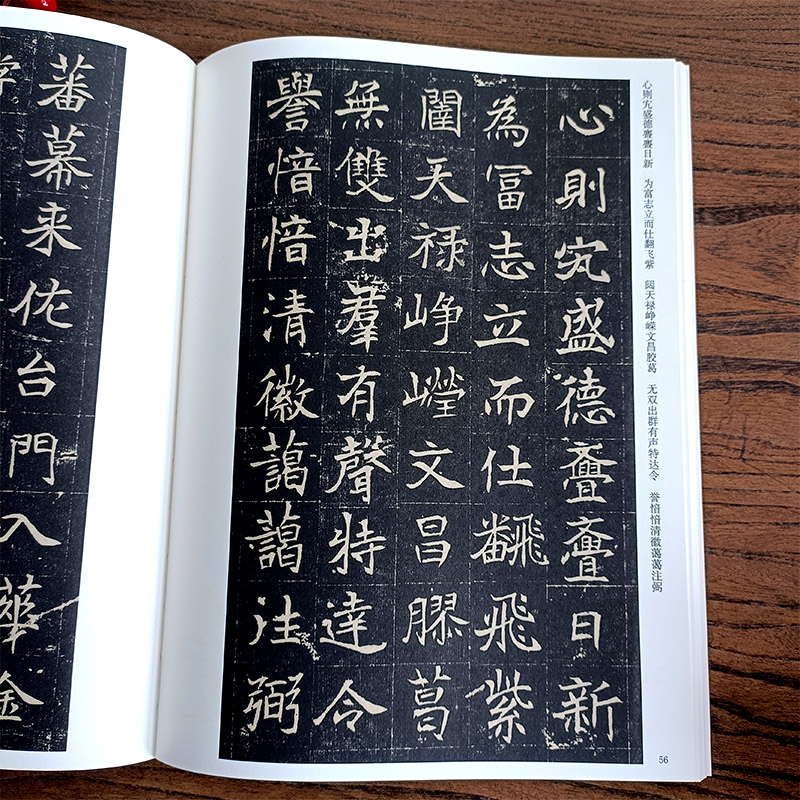 心则宄盛德亹亹日新　为富志立而仕翻飞紫　闼天禄峥嵘文昌胶葛　无双出群有声特达令　誉愔愔清徽蔼蔼注弼
心則宄盛德亹亹日新
為冨志立而仕翻飛紫
闥天禄崢嶸文昌膠葛
無雙出羣有聲特達令
譽愔愔清徽藹藹注弼
56
蕃幕来佐台門入華金